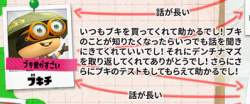 話が長い
いつもブキを買ってくれて助かるでし！ブキ
のことが知りたくなったらいつでも話を聞き
にきてくれていいでし！それにデンチナマズ
を取り返してくれてありがとうでし！さらにさ
らにブキのテストもしてもらえて助かるでし！
ブキ愛がすごい
ブキチ
話が長い